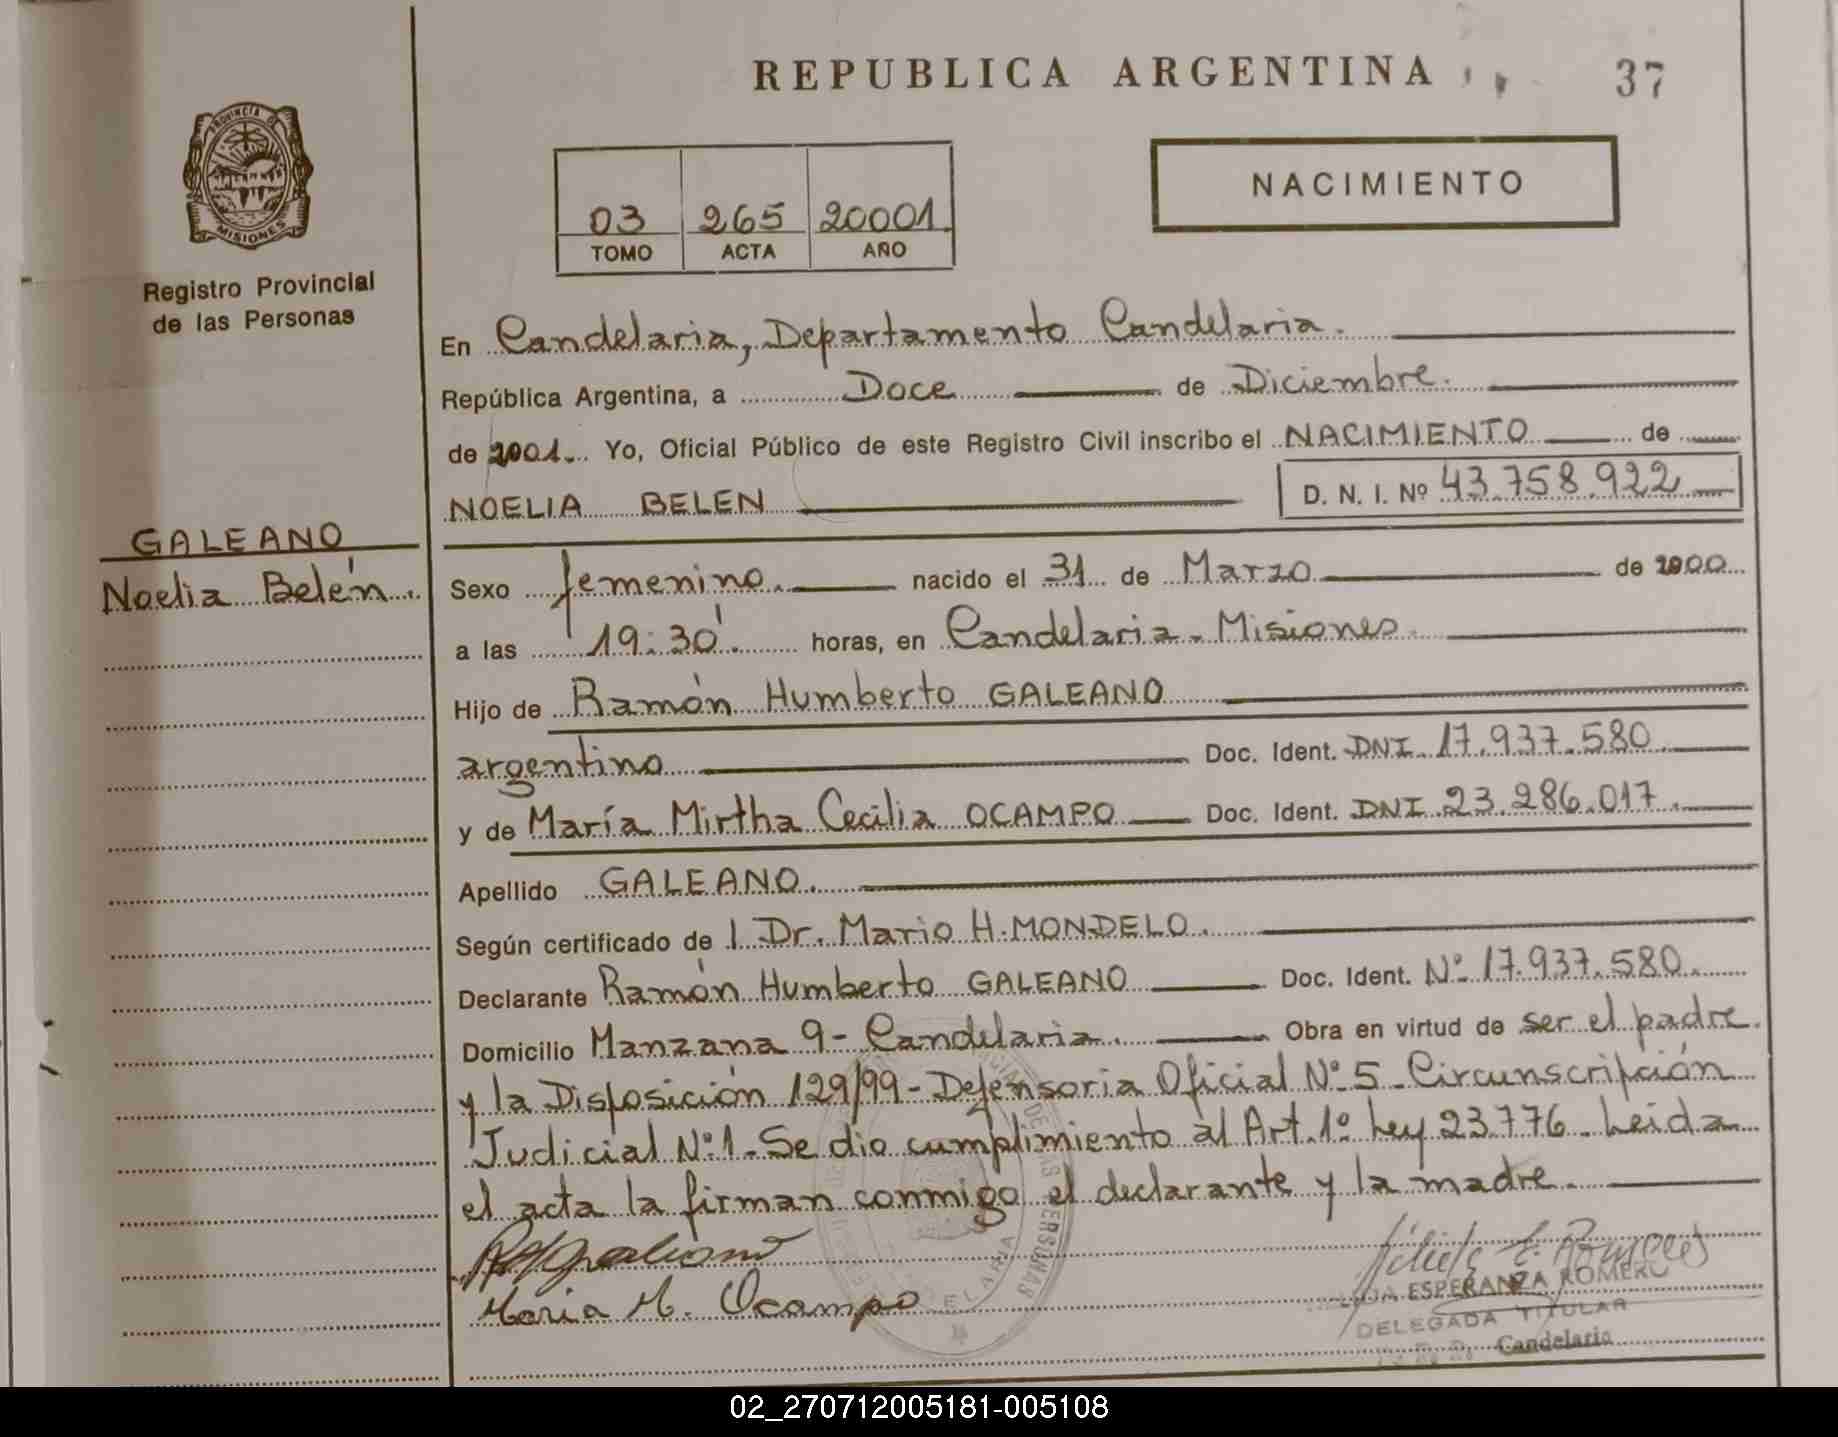 REPUBLICA ARGENTINA 37
PROVINCIA DE
MISIONES
Registro Provincial
de las Personas
NACIMIENTO
03 265 20001
TOMO ACTA AÑO
En Candelaria, Departamento Candelaria.
República Argentina, a Doce de Diciembre.
de 2001. Yo, Oficial Público de este Registro Civil inscribo el NACIMIENTO de
NOELIA BELEN D. N. I. Nº 43.758.922
GALEANO
Noelia Belén.
Sexo femenino. nacido el 31 de Marzo de 2000
a las 19:30'. horas, en Candelaria - Misiones.
Hijo de Ramón Humberto GALEANO
argentino Doc. Ident. DNI 17.937.580
y de María Mirtha Cecilia OCAMPO Doc. Ident. DNI 23.286.017.
Apellido GALEANO.
Según certificado de l Dr. Mario H. MONDELO.
Declarante Ramón Humberto GALEANO Doc. Ident. Nº 17.937.580.
Domicilio Manzana 9 - Candelaria. Obra en virtud de ser el padre
y la Disposición 129/99 - Defensoria Oficial Nº 5 - Circunscripción
Judicial Nº 1 - Se dio cumplimiento al Art. 1º Ley 23.776. Leida
el acta la firman conmigo el declarante y la madre.
Maria M. Ocampo
ESPERANZA ROMERO
DELEGADA TITULAR
Candelaria
02_270712005181-005108